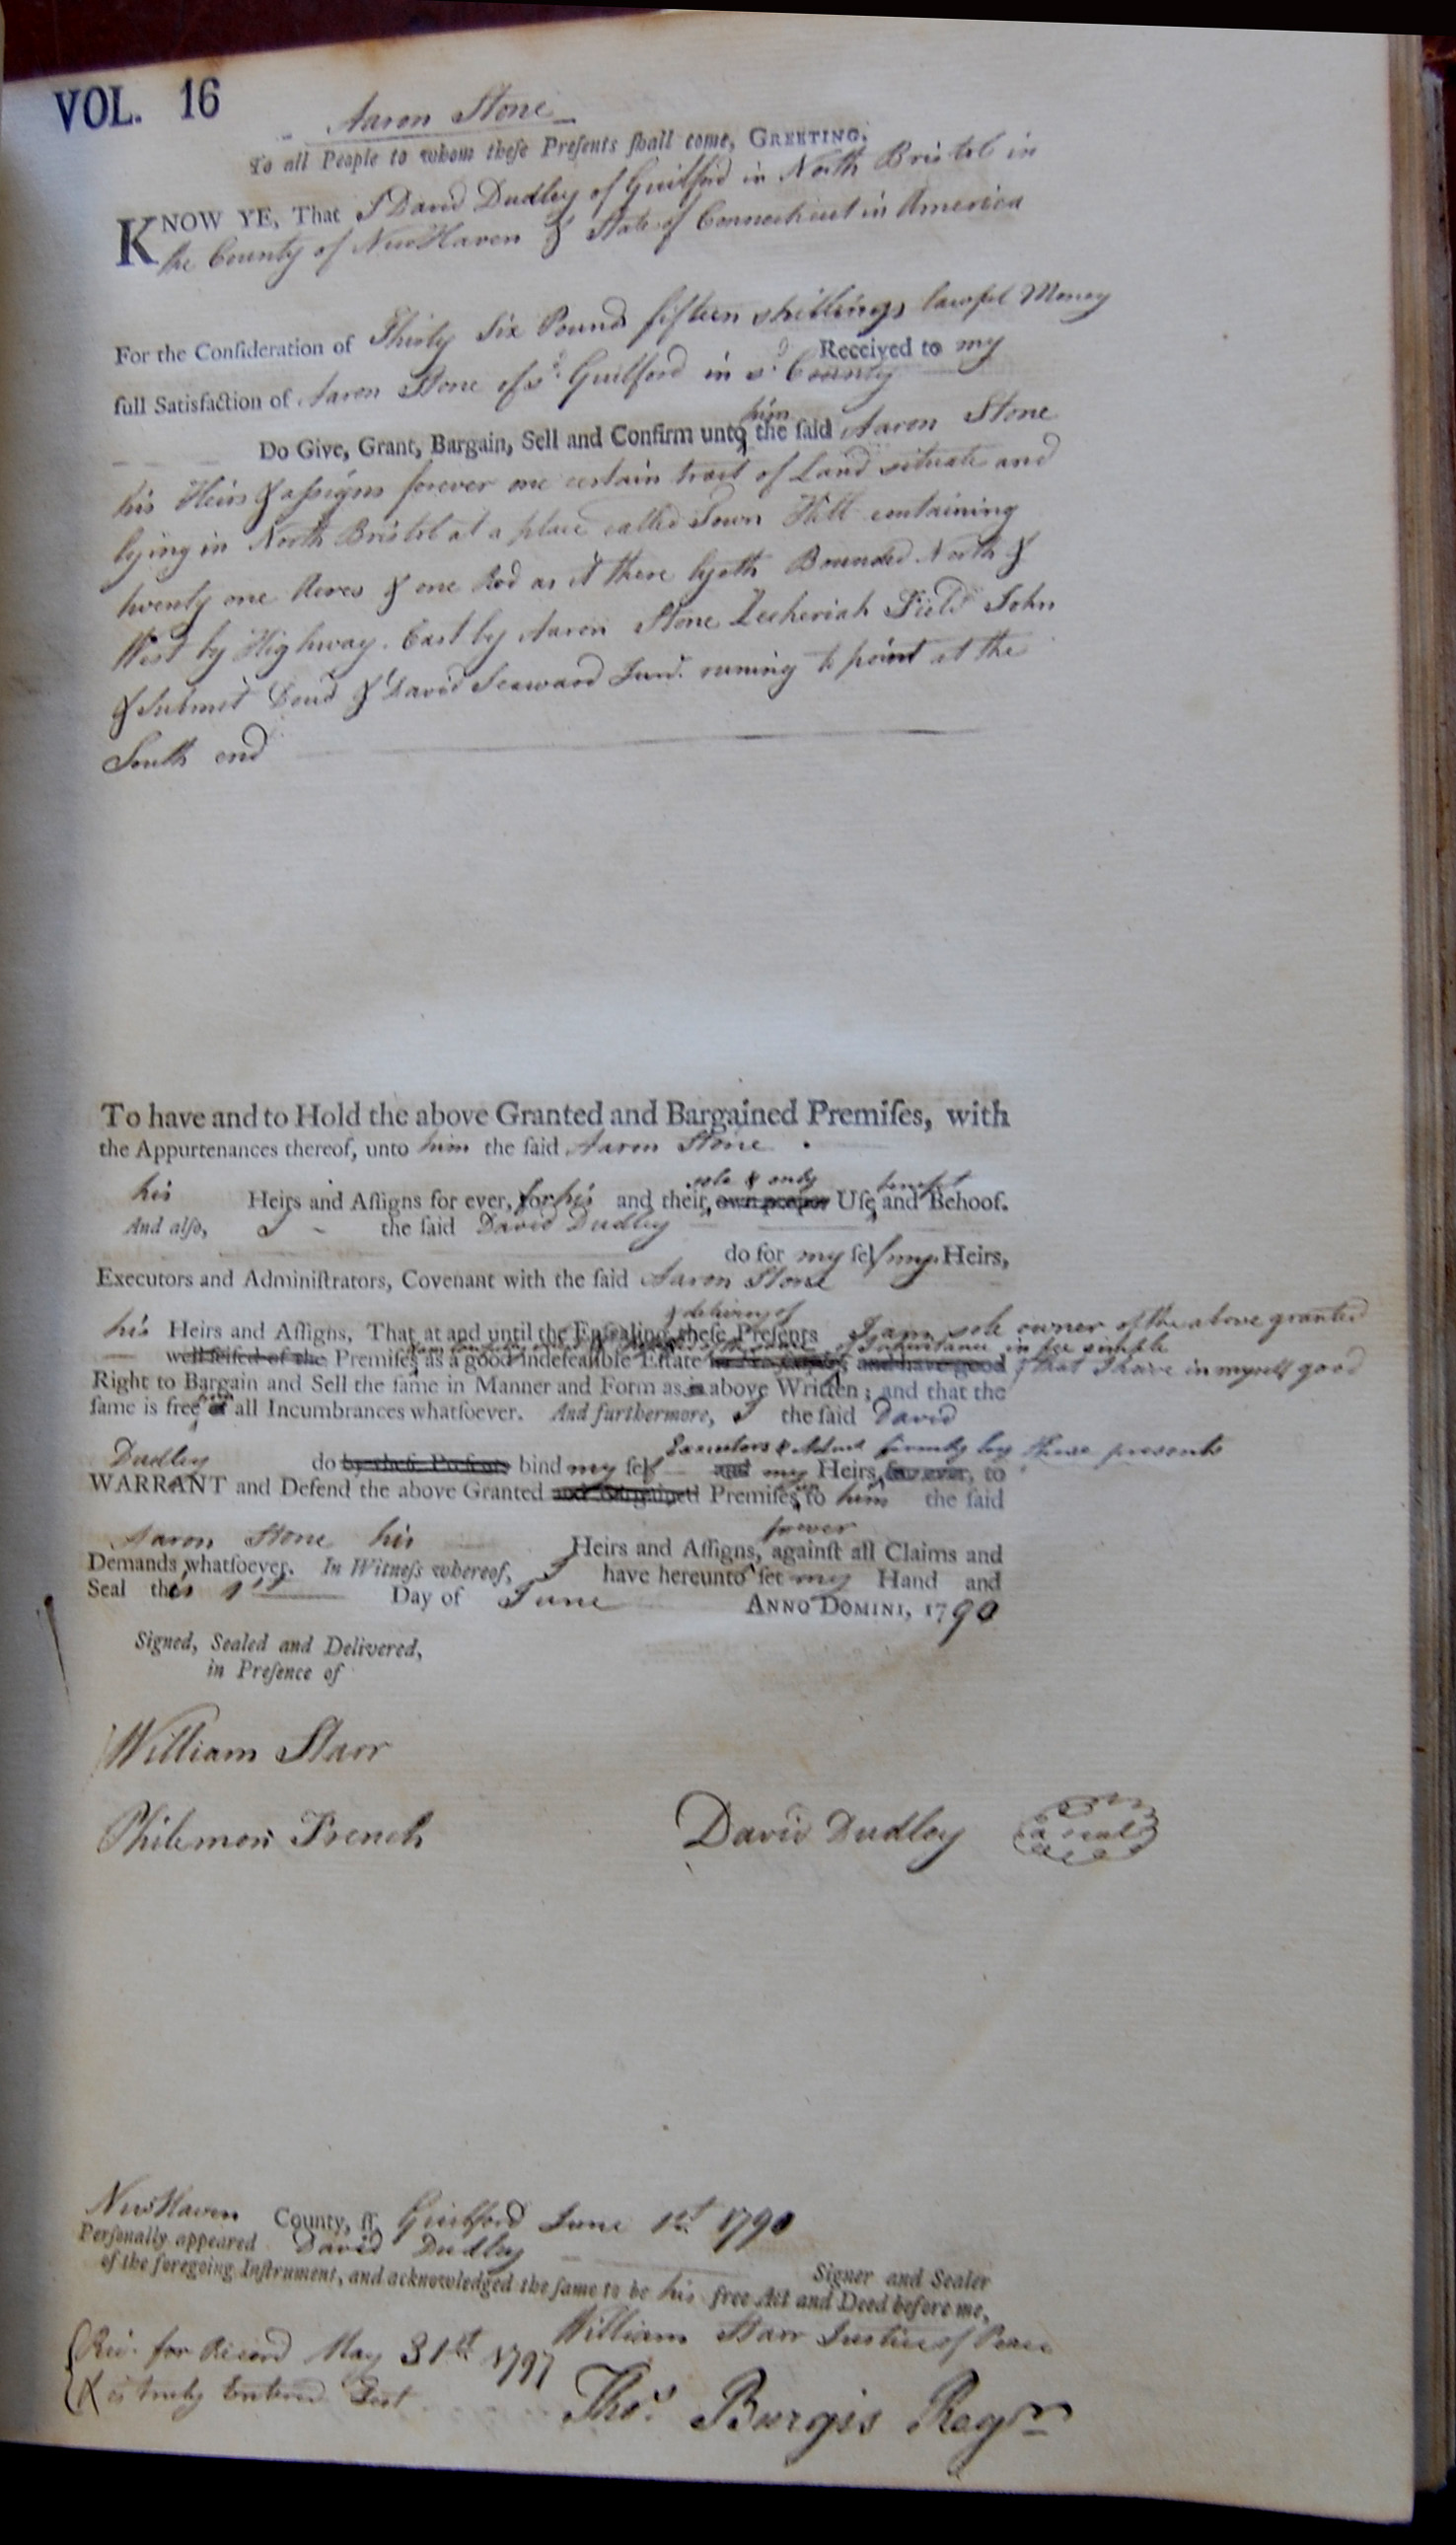 VOL. 16
Aaron Stone
To all People to whom theſe Preſents ſhall come, GREETING.
KNOW YE, That I David Dudley of Guilford in North Bristol in
the County of New Haven & State of Connecticut in America
For the Conſideration of Thirty Six Pounds fifteen shillings lawful Money
Received to my
full Satisfaction of Aaron Stone of sd. Guilford in sd. County
him
Do Give, Grant, Bargain, Sell and Confirm unto the ſaid Aaron Stone
his Heirs & aſsigns forever one certain tract of Land situate and
lying in North Bristol at a place called Town Hill containing
twenty one Acres & one Rod as it there lyeth Bounded North &
West by Highway. East by Aaron Stone Zecheriah Field John
& Submit Doud & David Seaward Junr. runing to point at the
South end
To have and to Hold the above Granted and Bargained Premiſes, with
the Appurtenances thereof, unto him the ſaid Aaron Stone
sole & only benefit
his Heirs and Aſſigns for ever, for his and their, own proper Uſe and Behoof.
And alſo, I the ſaid David Dudley
do for my ſelf my Heirs,
Executors and Adminiſtrators, Covenant with the ſaid Aaron Stone
& delivery of
his Heirs and Aſſigns, That at and until the Enſealing theſe Preſents I am sole owner of the above granted
of Inheritance in fee simple
well ſeiſed of the Premiſes as a good indefeaſible Eſtate and have good & that I have in myself good
Right to Bargain and Sell the ſame in Manner and Form as is above Written; and that the
ſame is free of all Incumbrances whatſoever. And furthermore, I the ſaid David
Executors & Admrs firmly by these presents
Dudley do by theſe Preſents bind my ſelf and my Heirs for ever, to
WARRANT and Defend the above Granted and Bargained Premiſes to him the ſaid
forever
Aaron Stone his Heirs and Aſſigns, againſt all Claims and
Demands whatſoever. In Witneſs whereof, I have hereunto ſet my Hand and
Seal this 1st Day of June ANNO DOMINI, 1790
Signed, Sealed and Delivered,
in Preſence of
William Starr
Philemon French
David Dudley a seal
New Haven County, ſſ. Guilford June 1st 1790
Perſonally appeared David Dudley
Signer and Sealer
of the foregoing Inſtrument, and acknowledged the ſame to be his free Act and Deed before me,
William Starr Justice of Peace
Recd. for Record May 31st 1797
& is truly Entered Test
Thos. Burgis Regr